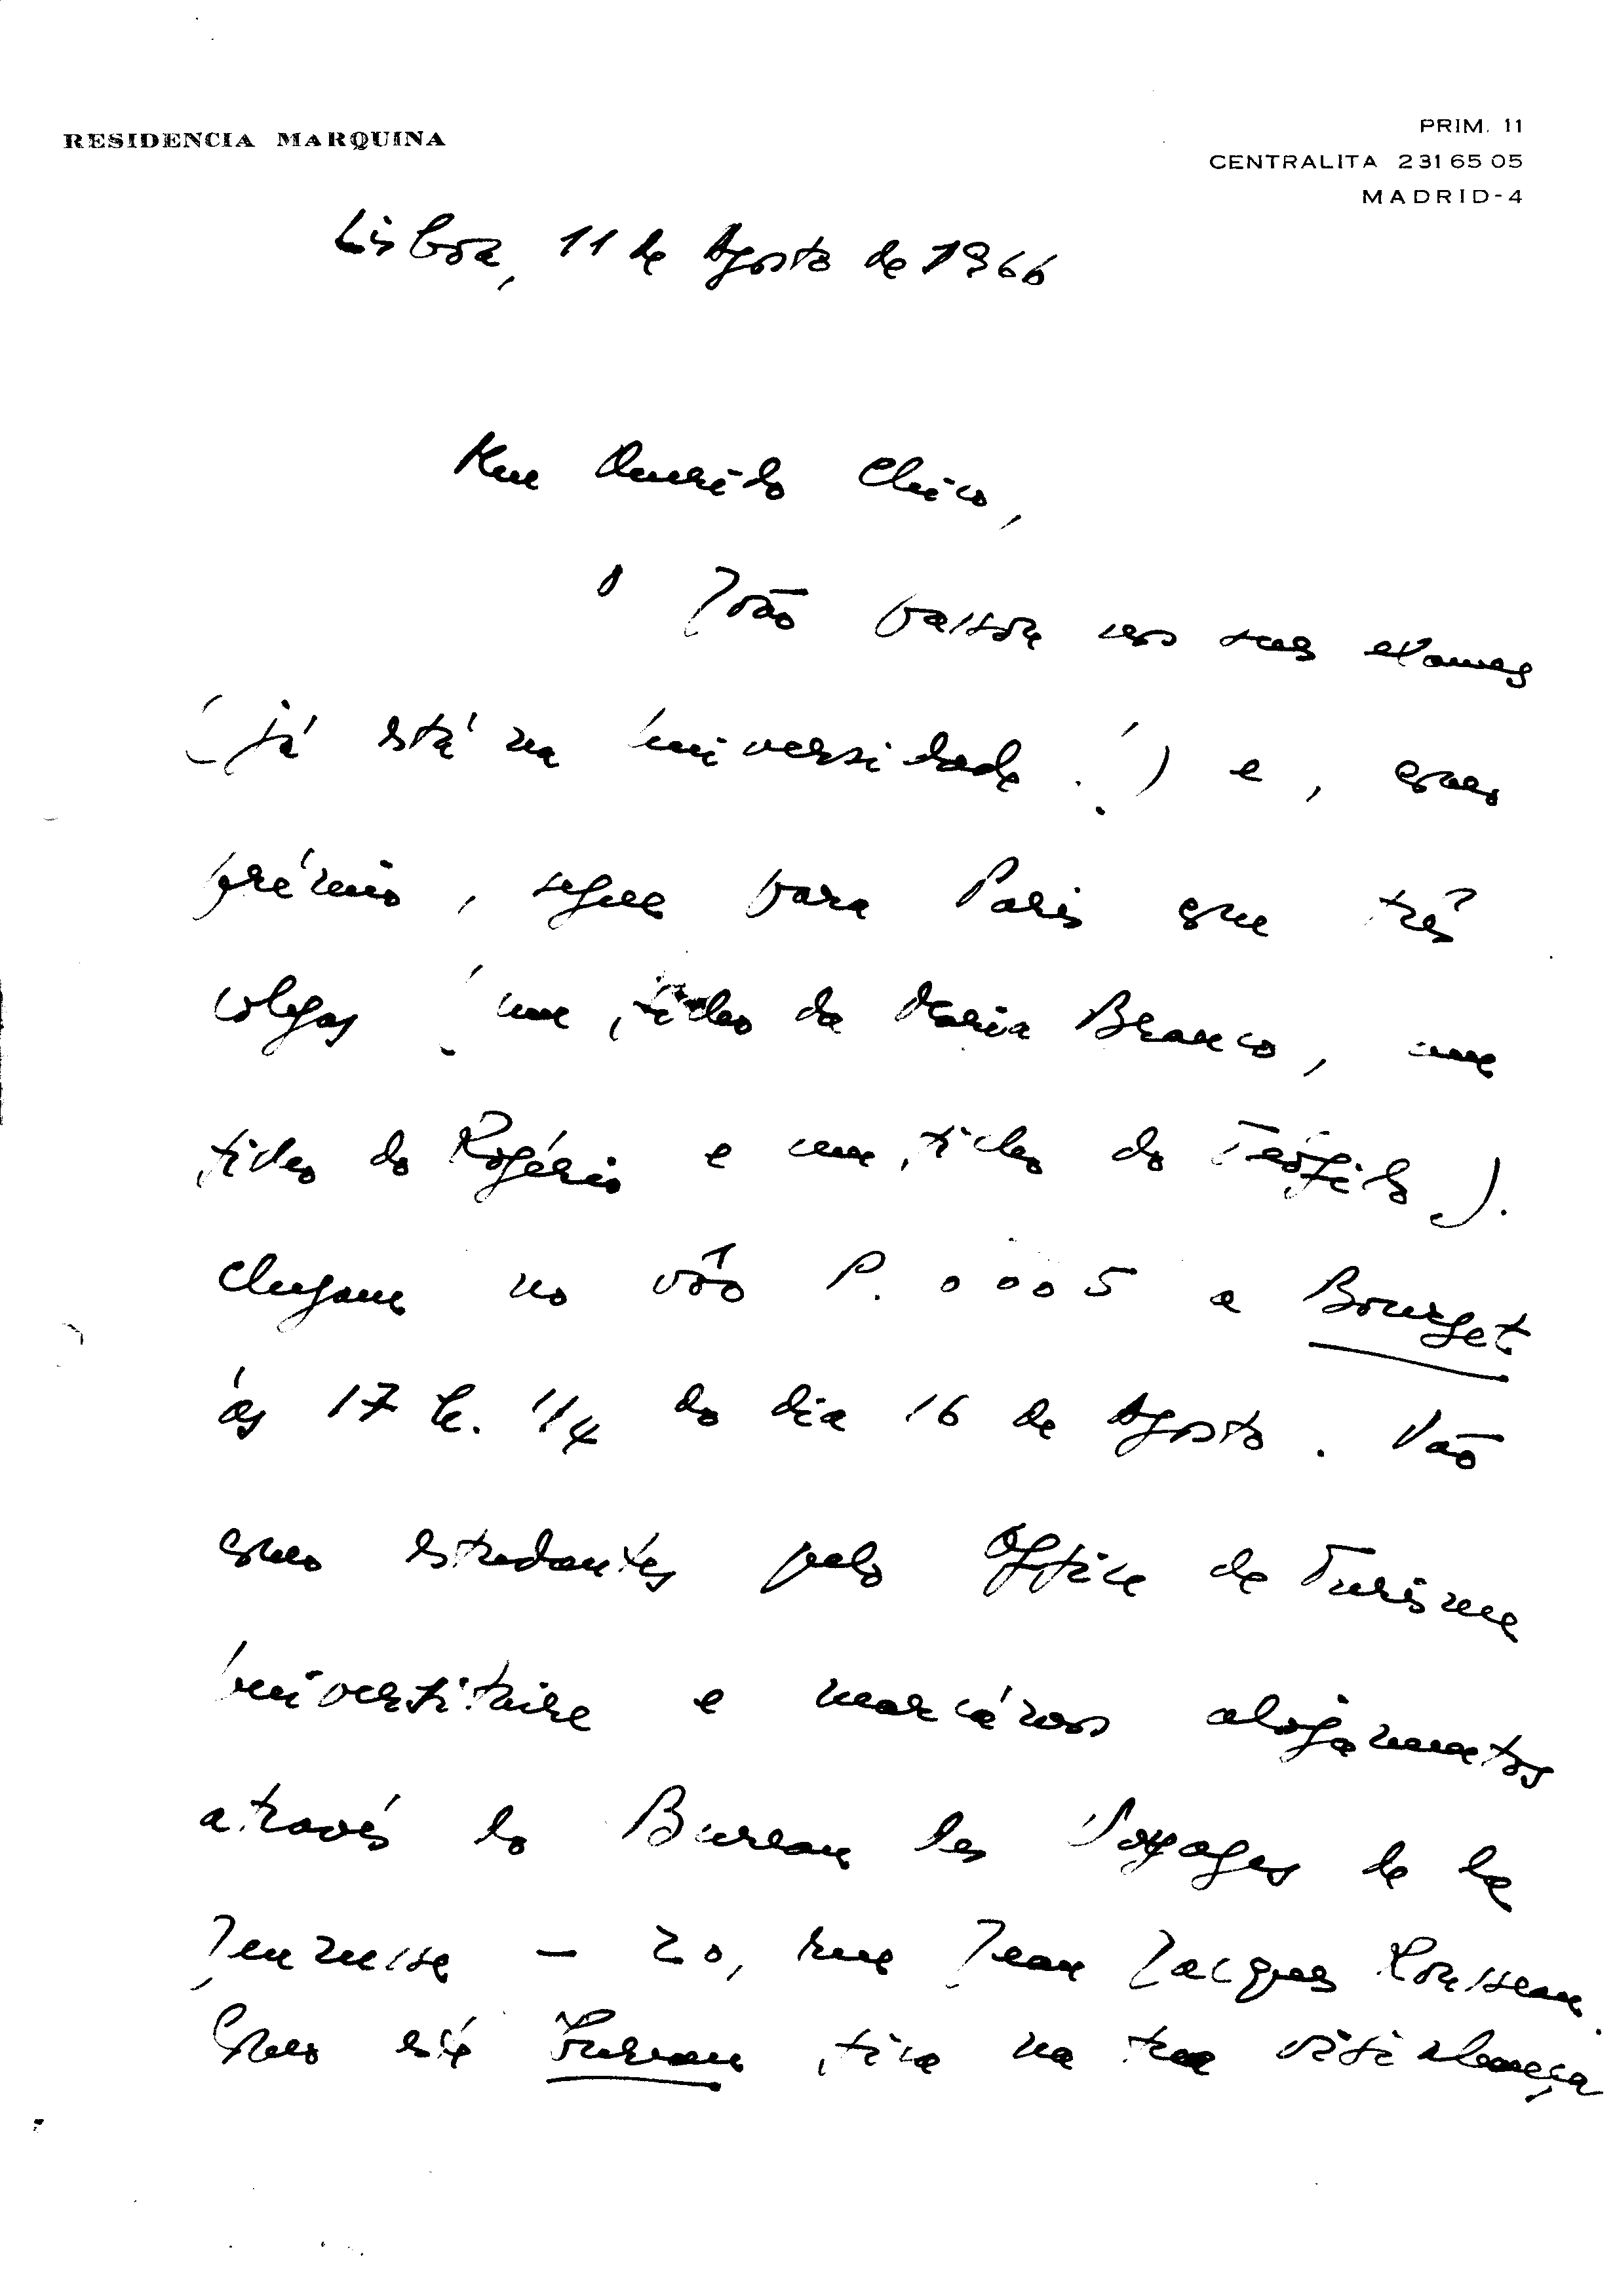 RESIDENCIA MARQUINA
PRIM. 11
CENTRALITA 231 65 05
MADRID-4
Lisboa, 11 de Agosto de 1966
Meu Querido Chico,
O João passou nos seus exames
(já está na Universidade!) e, como
prémio, segue para Paris com três
colegas (um filho da Maria Branco, um
filho do Rogério e um filho do Teófilo).
Chegam no vôo P. 0005 a Bourget
às 17 h. 1/4 do dia 16 de Agosto. Vão
como estudantes pelo Office de Turisme
Universitaire e marcámos alojamentos
através do Bureau des Voyages de la
Jeunesse – 20, rue Jean Jacques Rousseau.
Como este Bureau fica na tua vizinhança